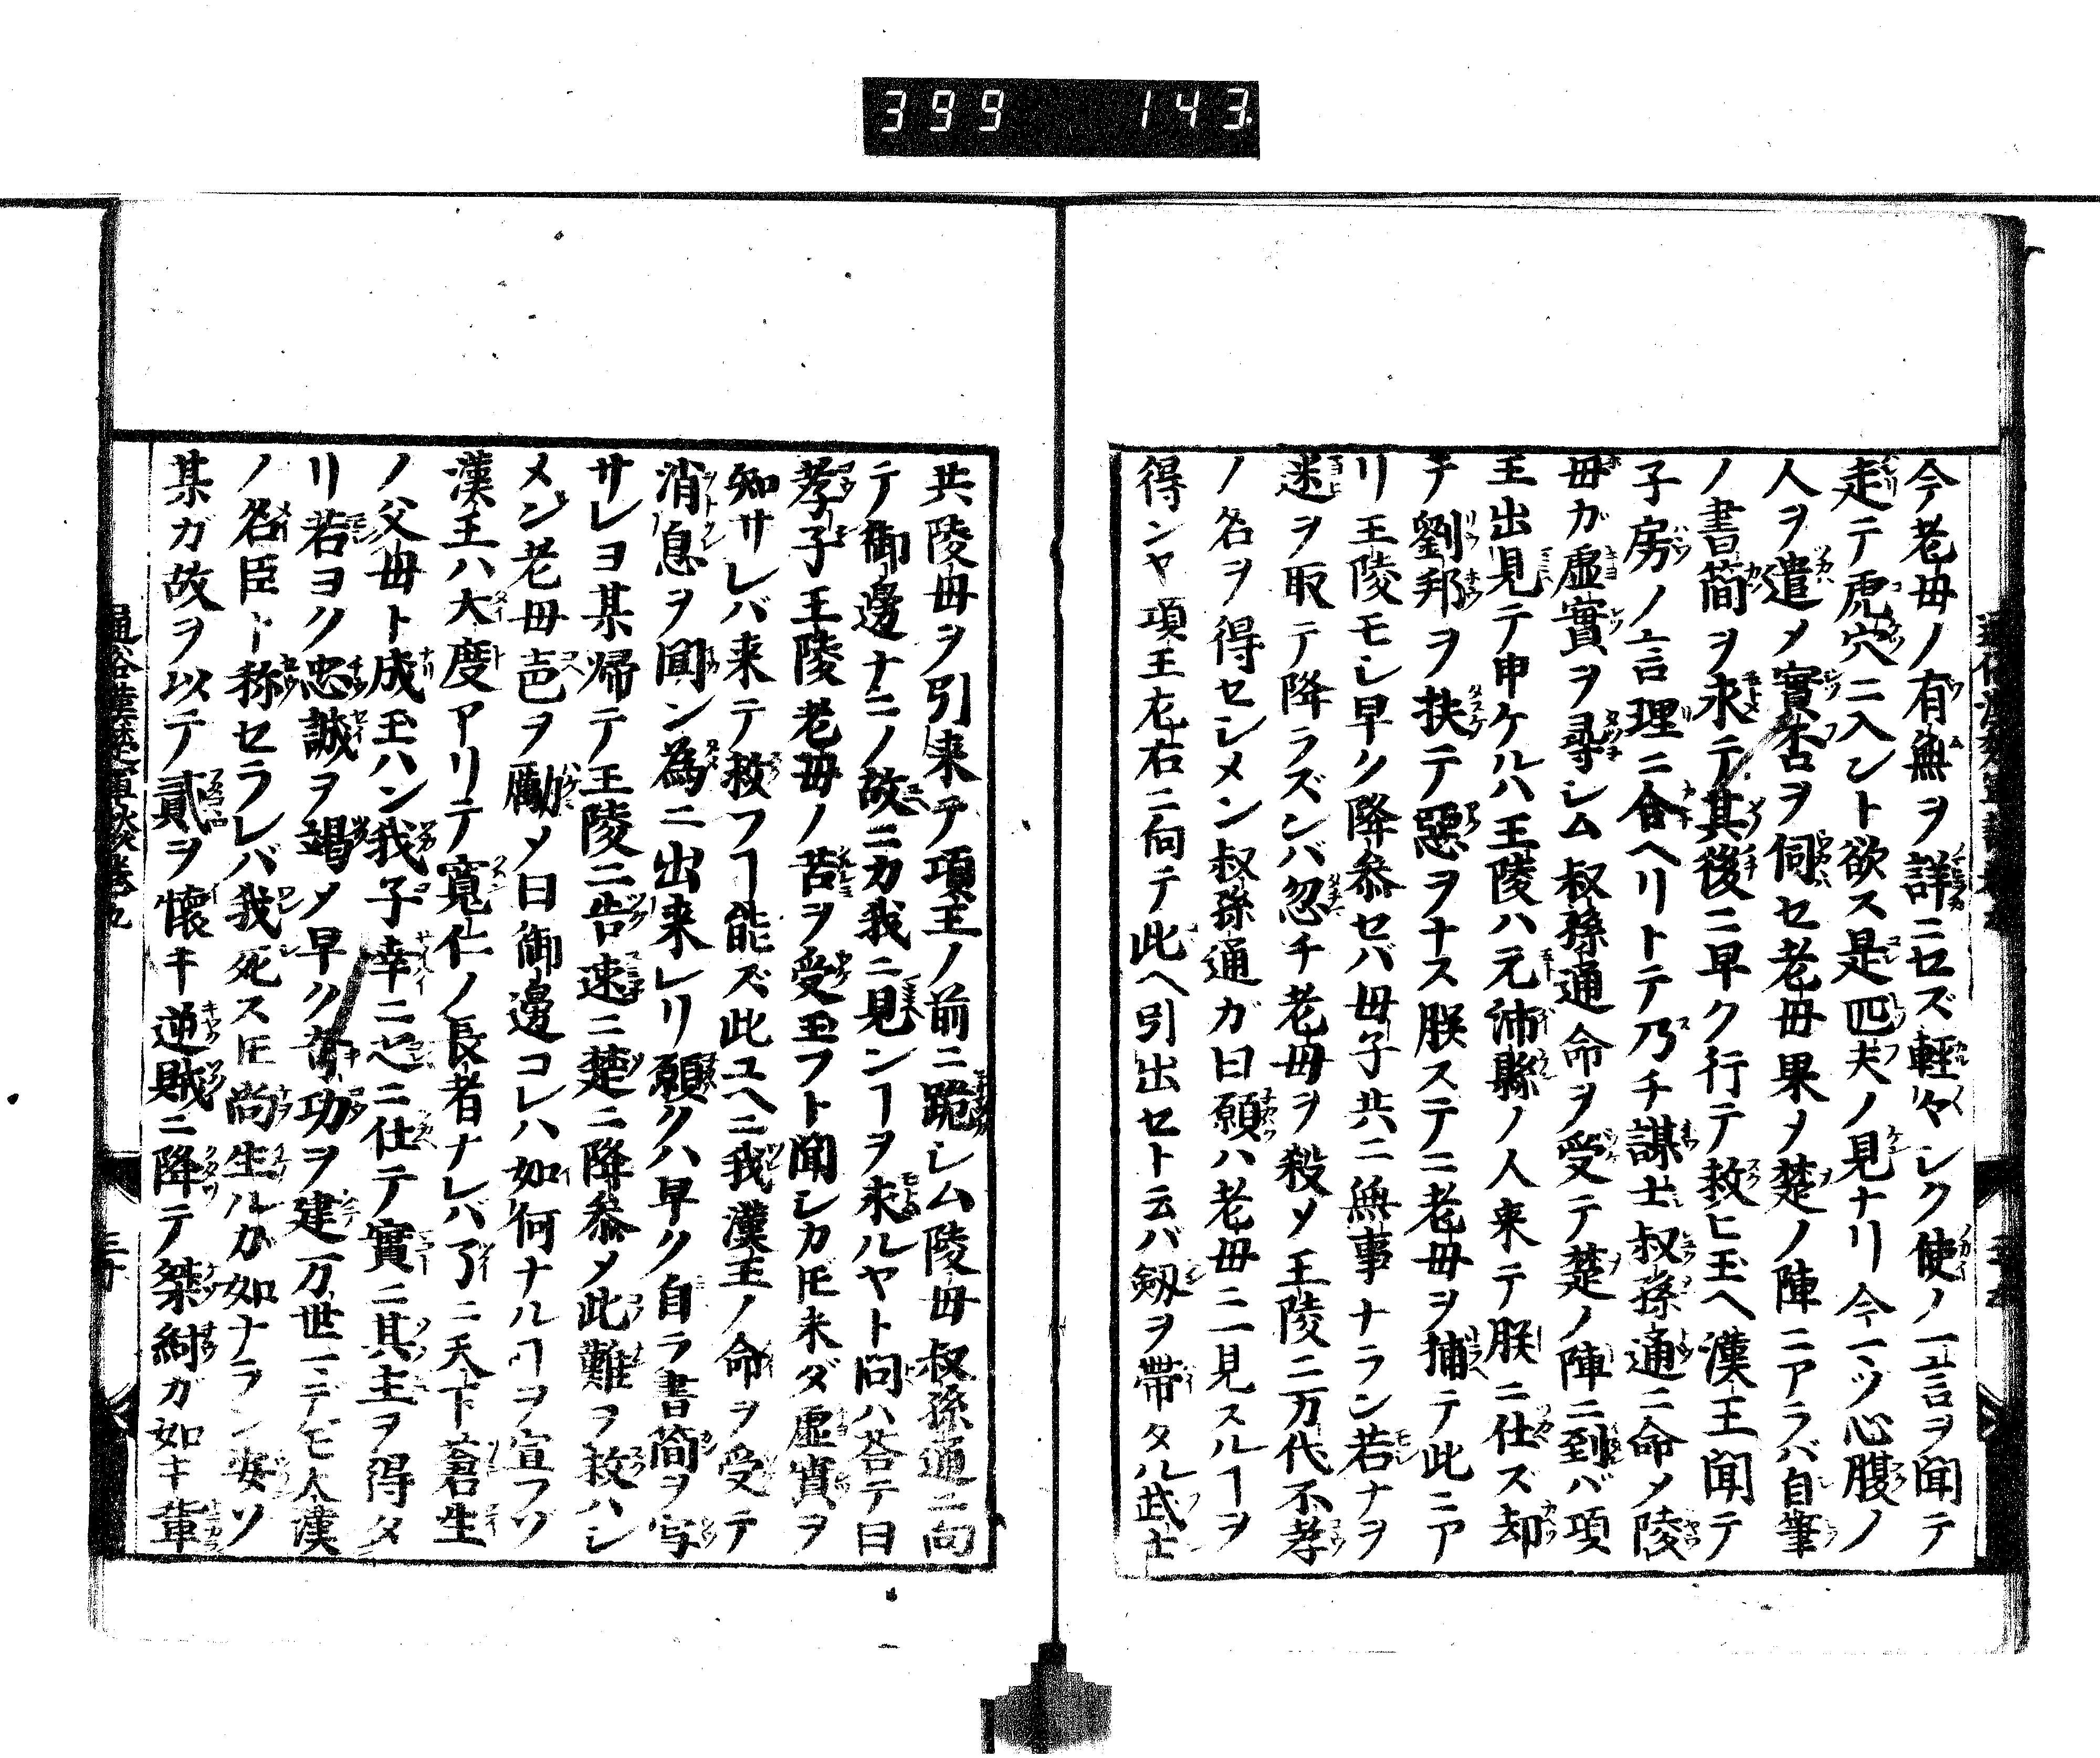 399 143
今老毋ノ有無ヲ詳ニセズ輕々シク使ノ一言ヲ聞テ
走テ虎穴ニ入ント欲ス是匹夫ノ見ナリ今一ツ心腹ノ
人ヲ遣メ實否ヲ伺セ老毋果メ楚ノ陣ニアラバ自筆
ノ書簡ヲ求テ其後ニ早ク行テ救ヒ玉ヘ漢王聞テ
子房ノ言理ニ合ヘリトテ乃チ謀士叔孫通ニ命メ陵
毋ガ虚實ヲ尋シム叔孫通命ヲ受テ楚ノ陣ニ到バ項
王出見テ申ケルハ王陵ハ元沛縣ノ人来テ朕ニ仕ズ却
テ劉邦ヲ扶テ惡ヲナス朕ステニ老毋ヲ捕テ此ニア
リ王陵モシ早ク降参セバ毋子共ニ無事ナラン若ナヲ
迷ヲ取テ降ラズンバ忽チ老毋ヲ殺メ王陵ニ万代不孝
ノ名ヲ得セシメン叔孫通ガ曰願ハ老毋ニ一見スルヿヲ
得ンヤ項王左右ニ向テ此ヘ引出セト云バ劔ヲ帶タル武士
共陵毋ヲ引来テ項王ノ前ニ跪シム陵毋叔孫通ニ向
テ御邊ナニノ故ニカ我ニ見ンヿヲ求ルヤト問ハ荅テ曰
孝子王陵老毋ノ苦ヲ受玉フト聞シカ𪜈未ダ虚實ヲ
知サレバ来テ救フヿ能ズ此ユヘニ我漢王ノ命ヲ受テ
消息ヲ聞ン為ニ出来レリ願クハ早ク自ラ書簡ヲ写
サレヨ某帰テ王陵ニ告速ニ楚ニ降参メ此難ヲ救ハシ
メン老毋声ヲ勵メ曰御邊コレハ如何ナルヿヲ宣フソ
漢王ハ大度アリテ寛仁ノ長者ナレバ了ニ天下蒼生
ノ父毋ト成玉ハン我子幸ニ之ニ仕テ實ニ其主ヲ得タ
リ若ヨク忠誠ヲ竭メ早ク奇功ヲ建万世ニデモ大漢
ノ名臣ト称セラレバ我死ス𪜈尚生ルガ如ナラン安ソ
某ガ故ヲ以テ貳ヲ懐キ逆賊ニ降テ桀紂ガ如キ輩